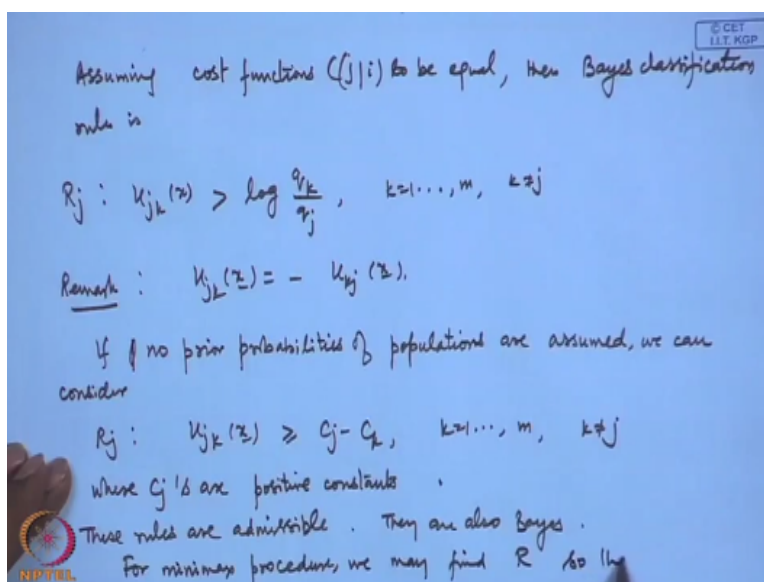 © CET
I.I.T. KGP
Assuming cost functions C(j|i) to be equal, then Bayes classification
rule is
Rj : Ujk(x) > log qk/qj, k=1..., m, k≠j
Remark : Ujk(x) = - Ukj(x).
If no prior probabilities of populations are assumed, we can
consider
Rj : Ujk(x) ≥ Cj - Ck, k=1..., m, k≠j
where Cj's are positive constants.
These rules are admissible. They are also Bayes.
For minimax procedure, we may find R so
NPTEL